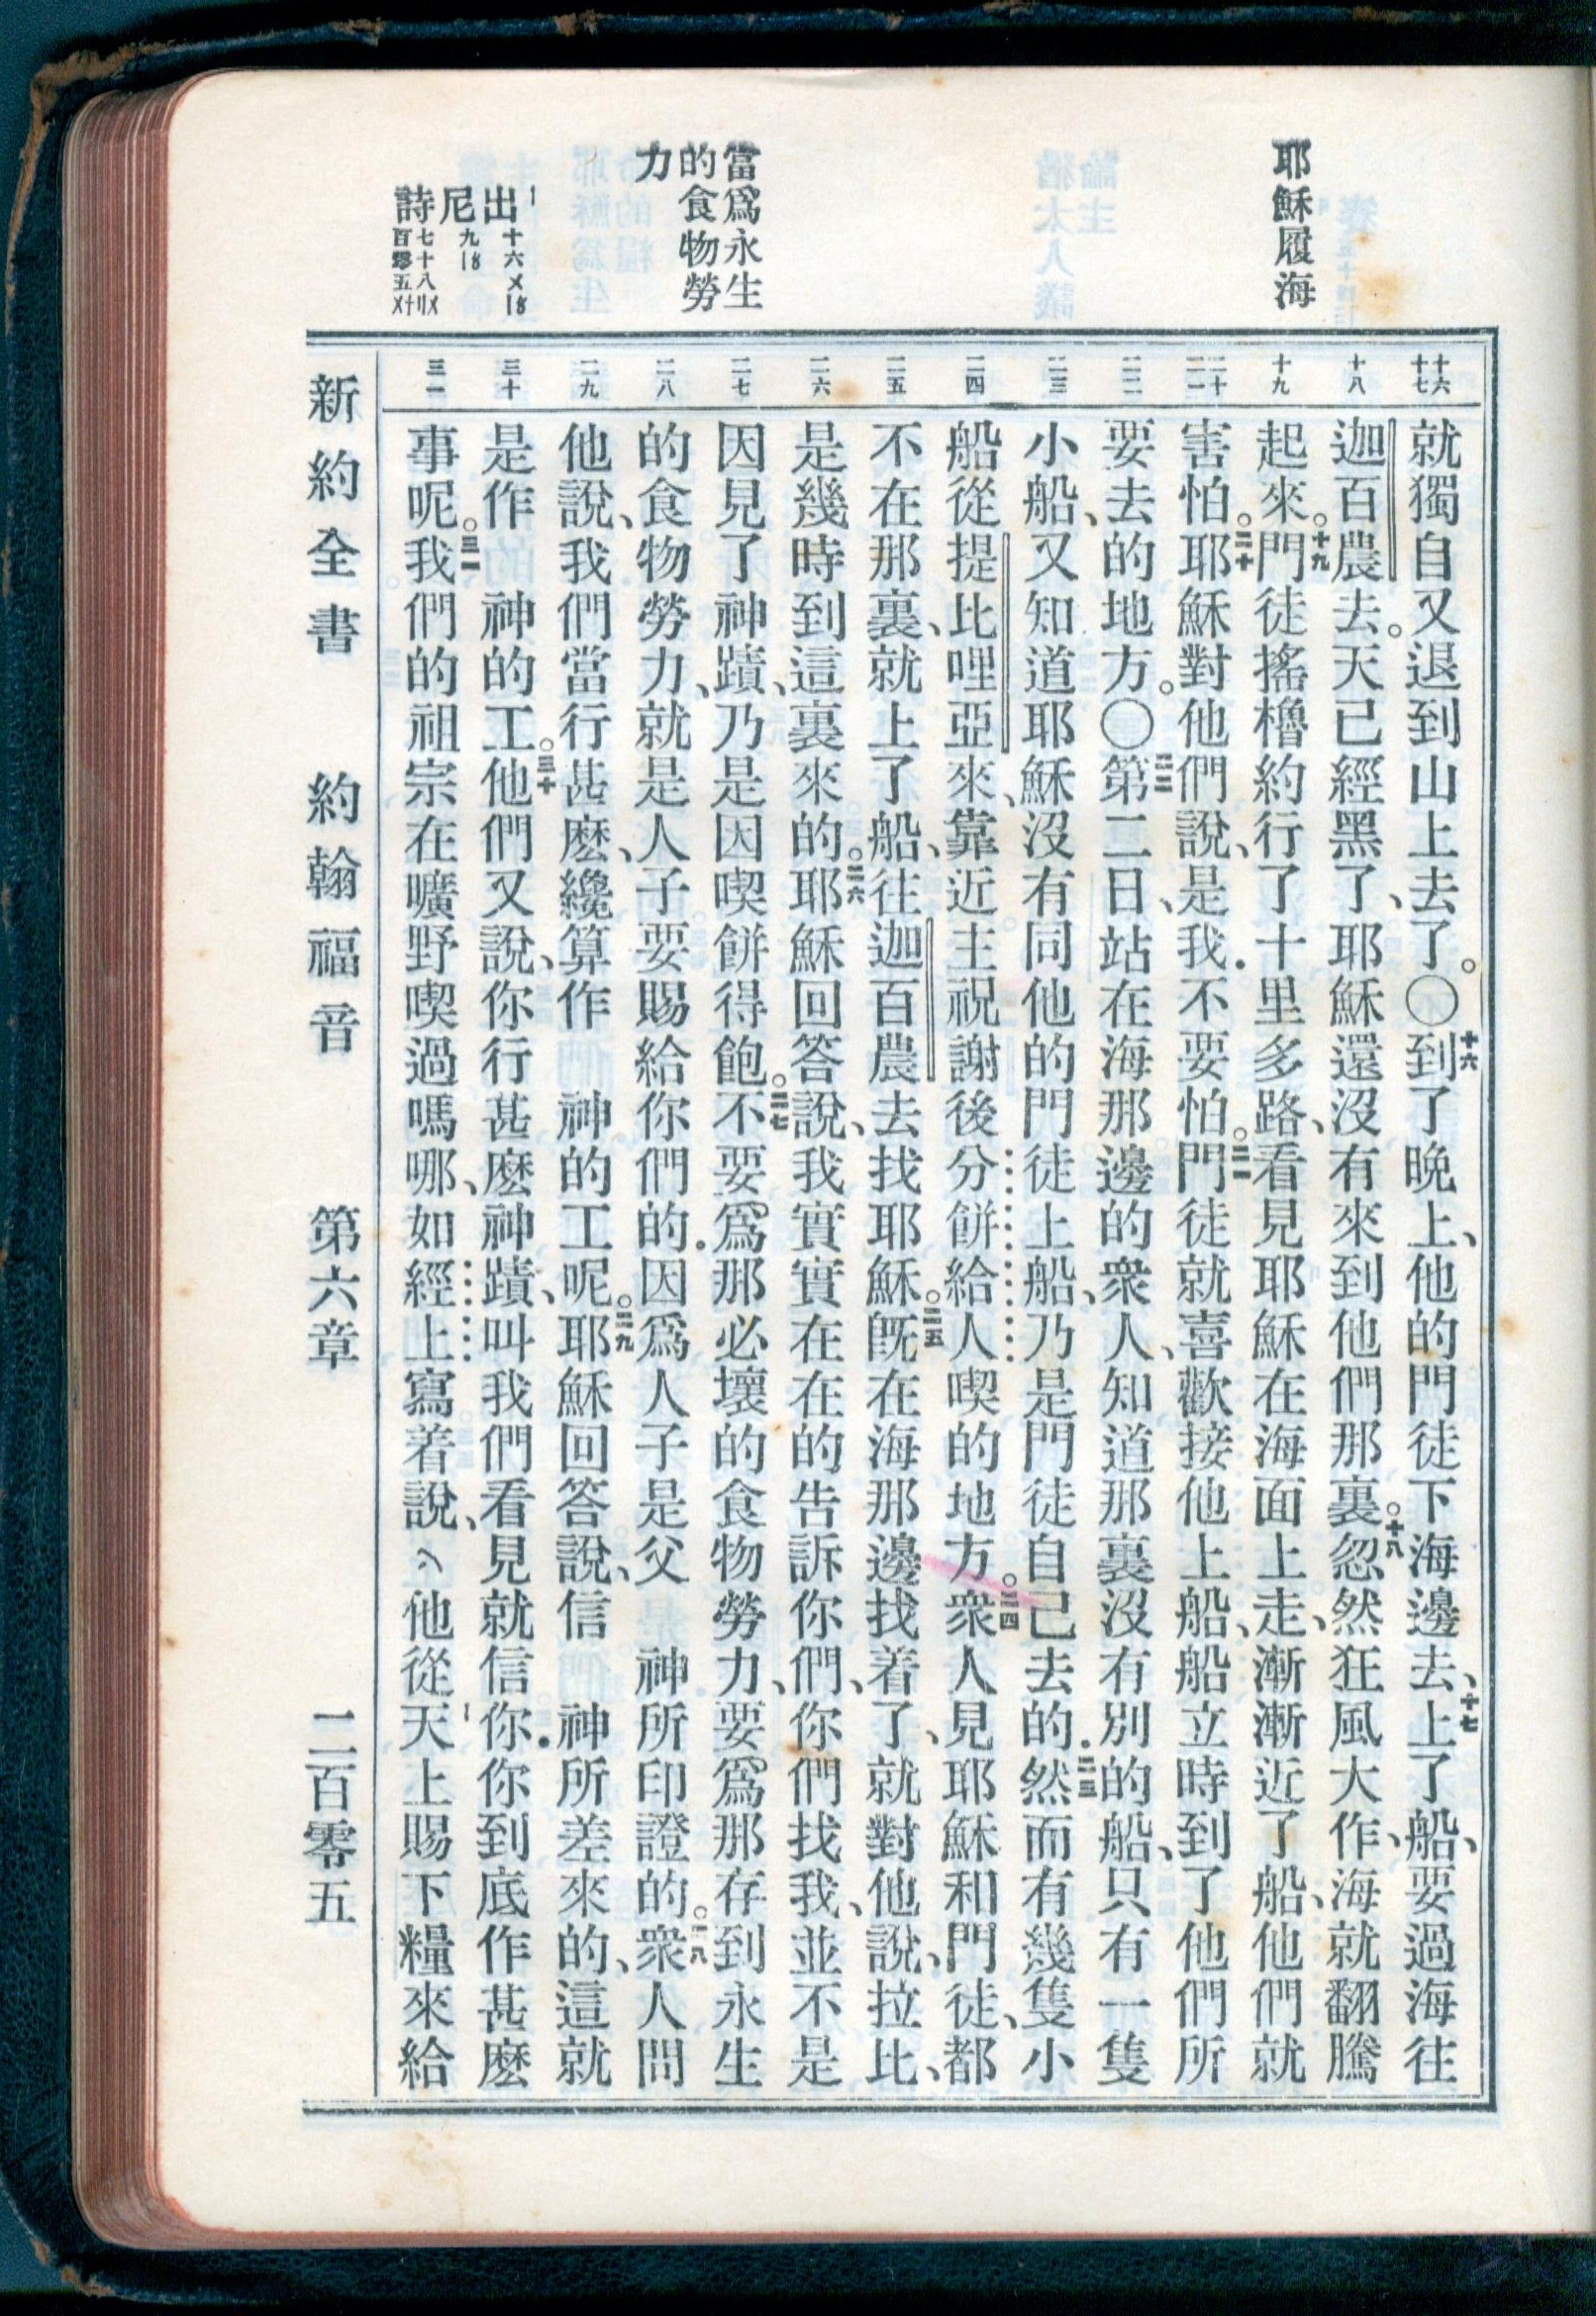 耶穌履海
當爲永生
的食物勞
力
出十六〤〡〥
尼九〡〥
詩七十八〢〤
百零五〤十
十六
十七
十八
十九
二十
二一
二二
二三
二四
二五
二六
二七
二八
二九
三十
三一
就獨自又退到山上去了。〇十六到了晚上、他的門徒下海邊去、十七上了船、要過海往
迦百農去。天已經黑了、耶穌還沒有來到他們那裏。十八忽然狂風大作、海就翻騰
起來。十九門徒搖櫓約行了十里多路、看見耶穌在海面上走、漸漸近了船、他們就
害怕。二十耶穌對他們說、是我．不要怕。二一門徒就喜歡接他上船、船立時到了他們所
要去的地方。〇二二第二日、站在海那邊的衆人、知道那裏沒有別的船、只有一隻
小船、又知道耶穌沒有同他的門徒上船、乃是門徒自己去的．二三然而有幾隻小
船從提比哩亞來、靠近主祝謝後分餅給人喫的地方。二四衆人見耶穌和門徒、都
不在那裏、就上了船、往迦百農去找耶穌。二五旣在海那邊找着了、就對他說、拉比、
是幾時到這裏來的。二六耶穌回答說、我實實在在的告訴你們、你們找我、並不是
因見了神蹟、乃是因喫餅得飽。二七不要爲那必壞的食物勞力、要爲那存到永生
的食物勞力、就是人子要賜給你們的．因爲人子是父　神所印證的。二八衆人問
他說、我們當行甚麽、纔算作　神的工呢。二九耶穌回答說、信　神所差來的、這就
是作　神的工。三十他們又說、你行甚麽神蹟、叫我們看見就信你．你到底作甚麽
事呢。三一我們的祖宗在曠野喫過嗎哪、如經上寫着說、他從天上賜下糧來給
新約全書　約翰福音　第六章　二百零五